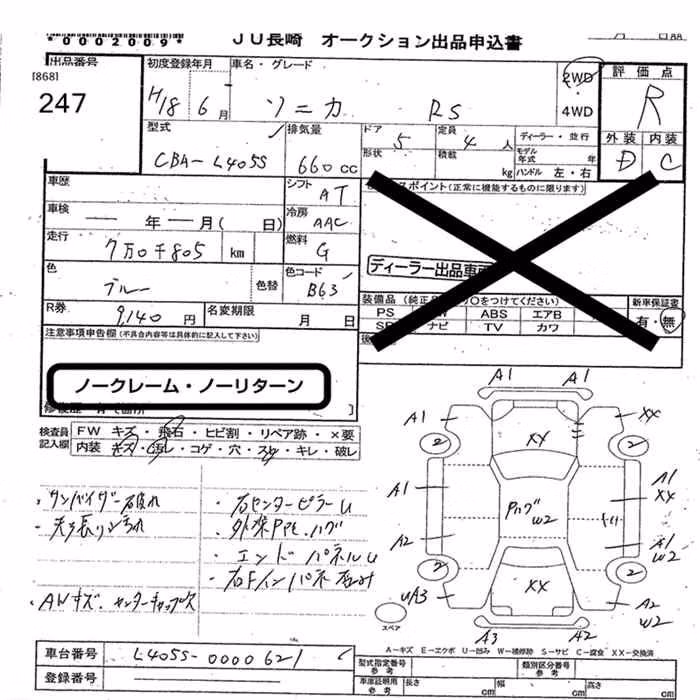 *0002009*
JU長崎 オークション出品申込書
出品番号
[868]
247
初度登録年月
H18 6月
車名・グレード
ソニカ RS
2WD
4WD
評価点
R
外装 内装
D C
型式
CBA-L405S
排気量
660cc
ドア 5
定員 4人
形状
積載 kg
ディーラー・並行
モデル年式 年
ハンドル 左・右
車歴
シフト AT
車検
年 月( 日)
冷房 AAC
走行
7万0千805 km
燃料 G
色
ブルー
色替
色コード
B63
R券
9,140円
名変期限
月 日
スポイント(正常に機能するものに限ります)
ディーラー出品車
装備品(純正 ○をつけてください)
PS ABS エアB
ナビ TV カワ
新車保証書
有・無
注意事項申告欄(不具合内容等は具体的に記入して下さい)
ノークレーム・ノーリターン
検査員記入欄
FW キズ・飛石・ヒビ割・リペア跡・×要
内装 キズ・汚レ・コゲ・穴・スレ・キレ・破レ
・サンバイザー破れ
・右センターピラーU
・エンドパネルU
・AWキズ、センターキャップ欠
A1 A1
A1 XX
2 XX 2
A1 A1
XX
W2
A2 A1
W2
2 XX 2
UA3 A2
W2
A3 A2
スペア
A-キズ E-エクボ U-凹み W-補修跡 S-サビ C-腐食 XX-交換済
車台番号 L405S-0000621
登録番号
型式指定番号 類別区分番号
車庫証明用参考 長さ cm 幅 cm 高さ cm